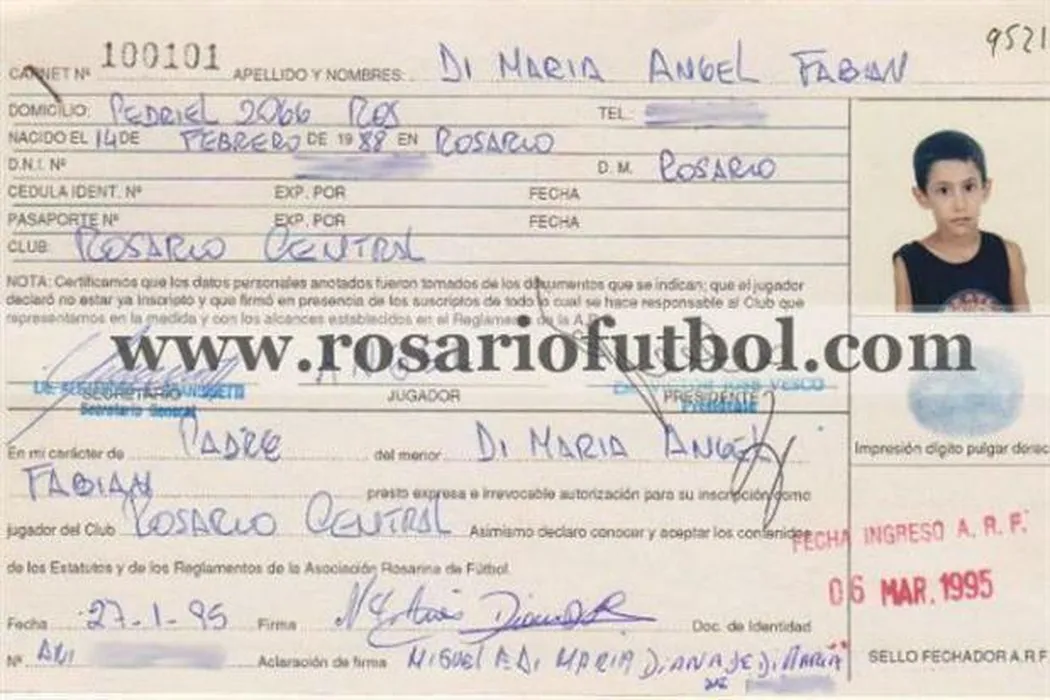 9521
CARNET Nº 100101 APELLIDO Y NOMBRES: DI MARIA ANGEL FABIAN
DOMICILIO: PEDRIEL 2066 ROS TEL.:
NACIDO EL 14 DE FEBRERO DE 1988 EN ROSARIO
D.N.I. Nº D. M. ROSARIO
CEDULA IDENT. Nº EXP. POR FECHA
PASAPORTE Nº EXP. POR FECHA
CLUB: ROSARIO CENTRAL
NOTA: Certificamos que los datos personales anotados fueron tomados de los documentos que se indican; que el jugador
declaró no estar ya inscripto y que firmó en presencia de los suscriptos de todo lo cual se hace responsable al Club que
representamos en la medida y con los alcances establecidos en el Reglamento de la A.R.
www.rosariofutbol.com
SECRETARIO JUGADOR PRESIDENTE
Secretario General Presidente
Impresión dígito pulgar derec
En mi carácter de PADRE del menor DI MARIA ANGEL
FABIAN presto expresa e irrevocable autorización para su inscripción como
jugador del Club ROSARIO CENTRAL Asimismo declaro conocer y aceptar los contenidos
de los Estatutos y de los Reglamentos de la Asociación Rosarina de Fútbol.
FECHA INGRESO A. R. F.
06 MAR. 1995
Fecha 27-1-95 Firma Doc. de Identidad
Nº Aclaración de firma MIGUEL A. DI MARIA DIANA DE DI MARIA
SELLO FECHADOR A.R.F